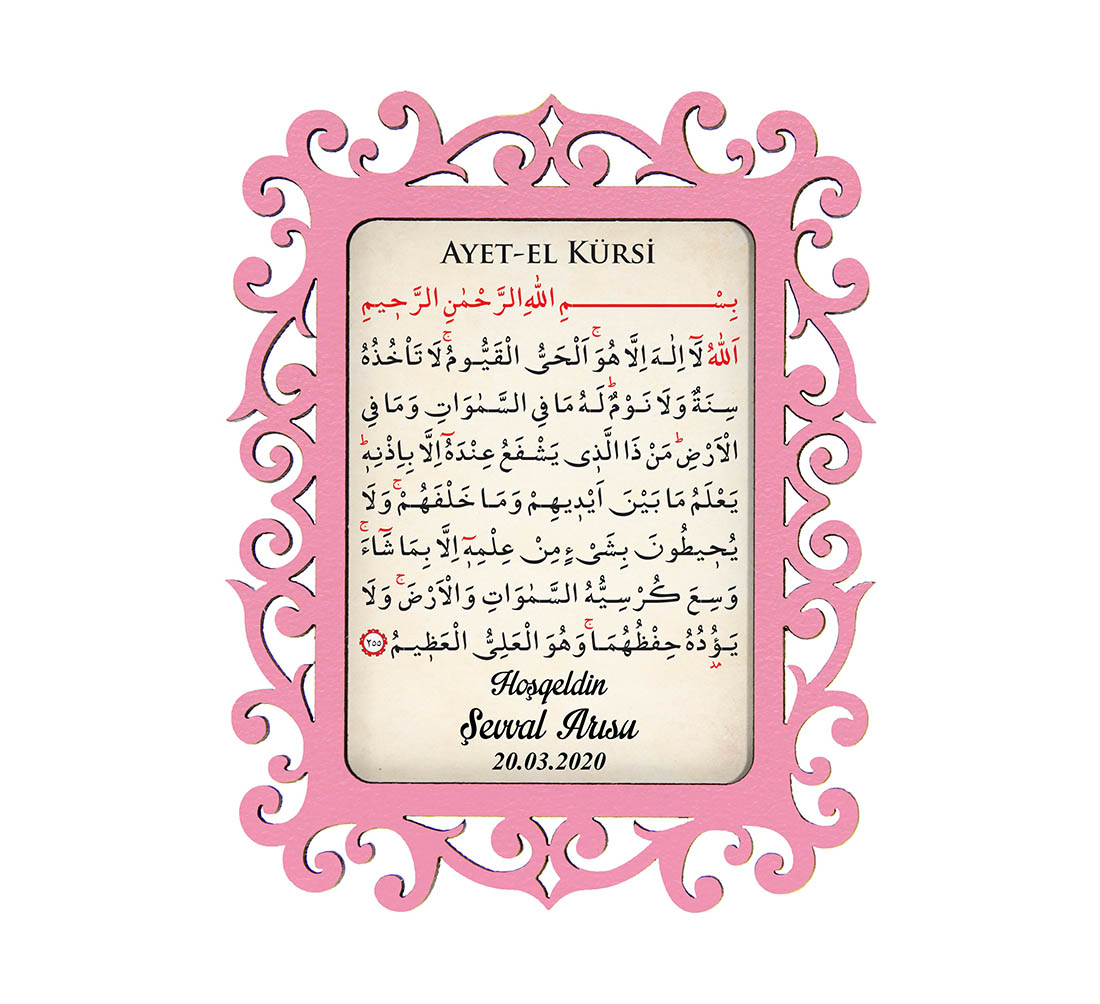 AYET-EL KÜRSİ
بِسْــــــــــــــــــمِ اللّٰهِ الرَّحْمٰنِ الرَّحٖيمِ
اَللّٰهُ لَٓا اِلٰهَ اِلَّا هُوَۚ اَلْحَىُّ الْقَيُّومُۚ لَا تَاْخُذُهُ
سِنَةٌ وَلَا نَوْمٌؕ لَهُ مَا فِى السَّمٰوَاتِ وَمَا فِى
الْاَرْضِؕ مَنْ ذَا الَّذٖى يَشْفَعُ عِنْدَهُٓ اِلَّا بِاِذْنِهٖؕ
يَعْلَمُ مَا بَيْنَ اَيْدٖيهِمْ وَمَا خَلْفَهُمْۚ وَلَا
يُحٖيطُونَ بِشَىْءٍ مِنْ عِلْمِهٖٓ اِلَّا بِمَا شَٓاءَۚ
وَسِعَ كُرْسِيُّهُ السَّمٰوَاتِ وَالْاَرْضَۚ وَلَا
يَؤُدُهُ حِفْظُهُمَاۚ وَهُوَ الْعَلِىُّ الْعَظٖيمُ ٢٥٥
Hoşgeldin
Şevval Arısu
20.03.2020